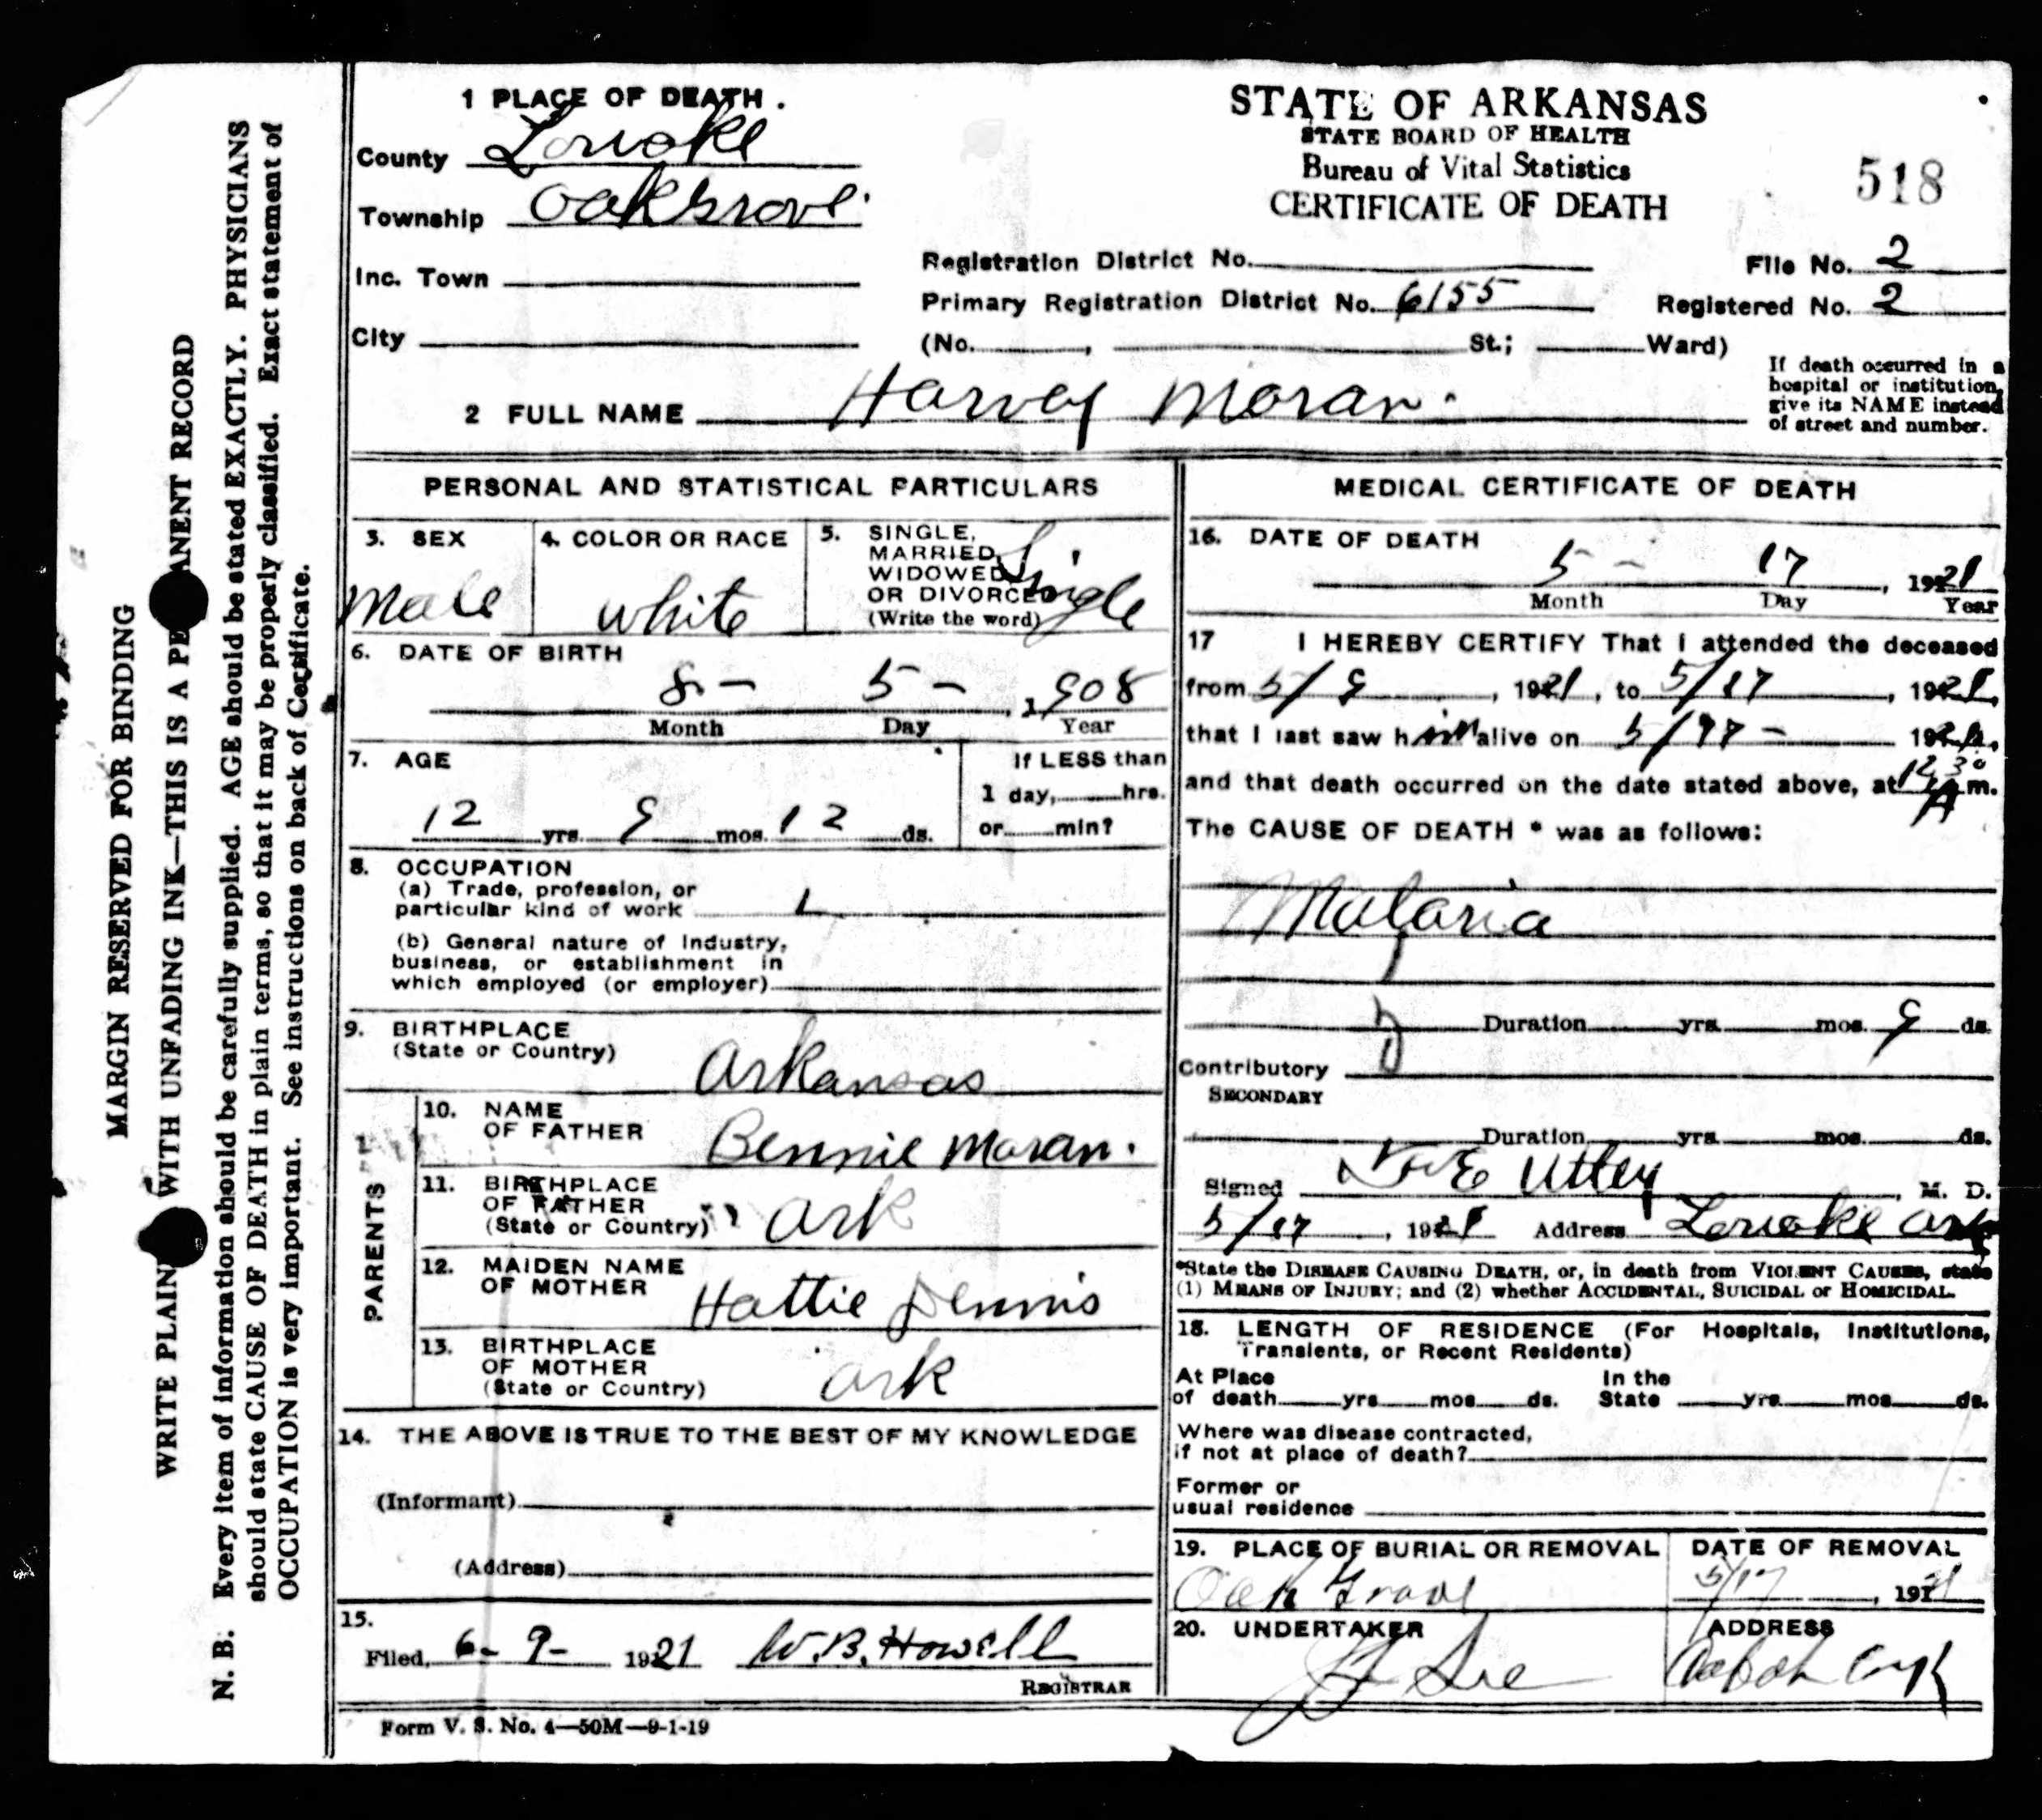 MARGIN RESERVED FOR BINDING
WRITE PLAIN WITH UNFADING INK—THIS IS A PE ANENT RECORD
N. B. Every item of information should be carefully supplied. AGE should be stated EXACTLY. PHYSICIANS
should state CAUSE OF DEATH in plain terms, so that it may be properly classified. Exact statement of
OCCUPATION is very important. See instructions on back of Certificate.
1 PLACE OF DEATH.
County Lonoke
Township Oakgrove
Inc. Town
City
STATE OF ARKANSAS
STATE BOARD OF HEALTH
Bureau of Vital Statistics
CERTIFICATE OF DEATH
518
Registration District No.
File No. 2
Primary Registration District No. 6155
Registered No. 2
(No. , St.; Ward)
If death occurred in a
hospital or institution,
give its NAME instead
of street and number.
2 FULL NAME Harvey Moran.
PERSONAL AND STATISTICAL PARTICULARS
3. SEX
Male
4. COLOR OR RACE
White
5. SINGLE,
MARRIED,
WIDOWED
OR DIVORCED
(Write the word)
Single
6. DATE OF BIRTH
8 - 5 - , 1908
Month Day Year
7. AGE
12 yrs. 9 mos. 12 ds.
If LESS than
1 day, hrs.
or min?
8. OCCUPATION
(a) Trade, profession, or
particular kind of work
(b) General nature of Industry,
business, or establishment in
which employed (or employer)
9. BIRTHPLACE
(State or Country)
Arkansas
PARENTS
10. NAME
OF FATHER
Bennie Moran.
11. BIRTHPLACE
OF FATHER
(State or Country)
Ark
12. MAIDEN NAME
OF MOTHER
Hattie Dennis
13. BIRTHPLACE
OF MOTHER
(State or Country)
Ark
14. THE ABOVE IS TRUE TO THE BEST OF MY KNOWLEDGE
(Informant)
(Address)
15.
Filed, 6 - 9 - 1921 W.B. Howell
REGISTRAR
Form V. S. No. 4—50M—9-1-19
MEDICAL CERTIFICATE OF DEATH
16. DATE OF DEATH
5 - 17 , 1921
Month Day Year
17 I HEREBY CERTIFY That I attended the deceased
from 5/9 , 1921, to 5/17 , 1921,
that I last saw him alive on 5/17 - 1921,
and that death occurred on the date stated above, at 12 30 A m.
The CAUSE OF DEATH * was as follows:
Malaria
Duration yrs. mos. 9 ds.
Contributory
SECONDARY
Duration yrs. mos. ds.
Signed E Utley , M. D.
5/17 , 1921 Address Lonoke Ark
*State the DISEASE CAUSING DEATH, or, in death from VIOLENT CAUSES, state
(1) MEANS OF INJURY; and (2) whether ACCIDENTAL, SUICIDAL or HOMICIDAL.
18. LENGTH OF RESIDENCE (For Hospitals, Institutions,
Transients, or Recent Residents)
At Place In the
of death yrs mos ds. State yrs. mos ds.
Where was disease contracted,
if not at place of death?
Former or
usual residence
19. PLACE OF BURIAL OR REMOVAL
Oak Grove
DATE OF REMOVAL
5/17 , 1921
20. UNDERTAKER
ADDRESS